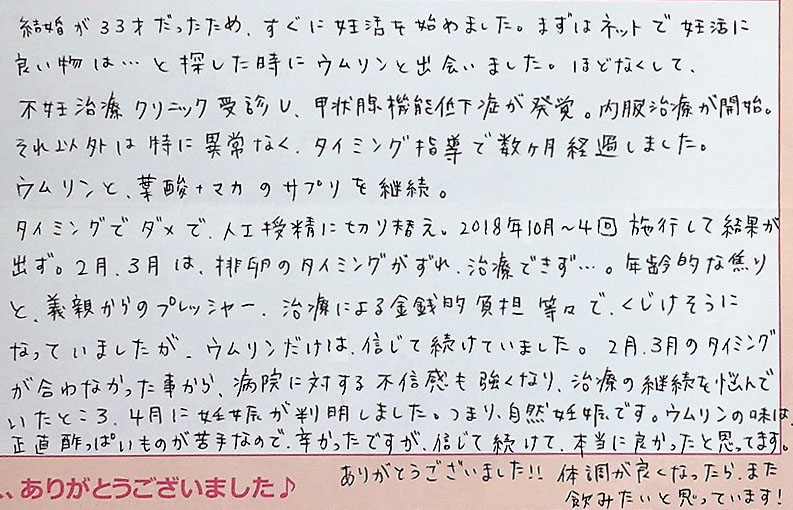 結婚が33才だったため、すぐに妊活を始めました。まずはネットで妊活に
良い物は…と探した時にウムリンと出会いました。ほどなくして、
不妊治療クリニック受診し、甲状腺機能低下症が発覚。内服治療が開始。
それ以外は特に異常なく、タイミング指導で数ヶ月経過しました。
ウムリンと、葉酸+マカのサプリを継続。
タイミングでダメで、人工授精に切り替え。2018年10月〜4回施行して結果が
出ず。2月、3月は、排卵のタイミングがずれ、治療できず…。年齢的な焦り
と、義親からのプレッシャー、治療による金銭的負担等々で、くじけそうに
なっていましたが、ウムリンだけは、信じて続けていました。2月、3月のタイミング
が合わなかった事から、病院に対する不信感も強くなり、治療の継続を悩んで
いたところ、4月に妊娠が判明しました。つまり、自然妊娠です。ウムリンの味は、
正直酢っぱいものが苦手なので、辛かったですが、信じて続けて、本当に良かったと思ってます。
ありがとうございました!! 体調が良くなったら、また
飲みたいと思っています!
、ありがとうございました♪